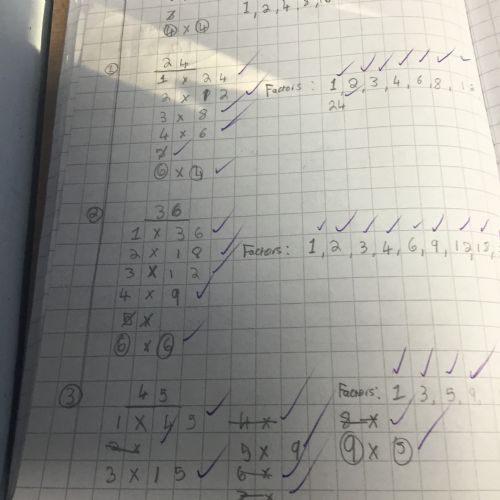 1, 2, 4, 8,
④ x ④
① 24
1 x 24
Factors: 1, 2, 3, 4, 6, 8,
2 x 12
24
3 x 8
4 x 6
⑥ x ④
② 36
1 x 36
2 x 18
Factors: 1, 2, 3, 4, 6, 9, 12, 18,
3 x 12
4 x 9
5 x
⑥ x ⑥
③ 45
Factors: 1, 3, 5, 9,
1 x 45
4 x
8 x
2 x
5 x 9
⑨ x ⑤
3 x 15
6 x
7 x